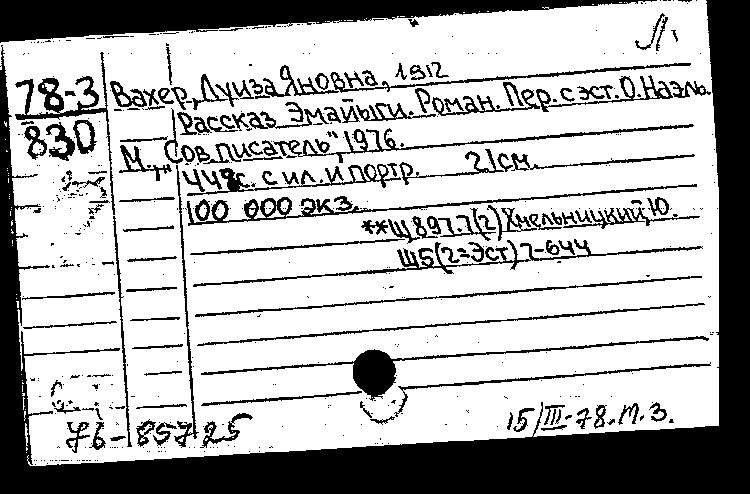 Л.
78-3
830
Вахер, Луиза Яновна, 1912
Рассказ Эмайыги. Роман. Пер. с эст. О. Наэль.
М., „Сов писатель", 1976.
448с. с ил. и портр. 21см.
100 000 экз.
**Щ897.7(2) Хмельницкий, Ю.
Щ5(2=Эст)7-644
76-85725
15/III-78. М.З.